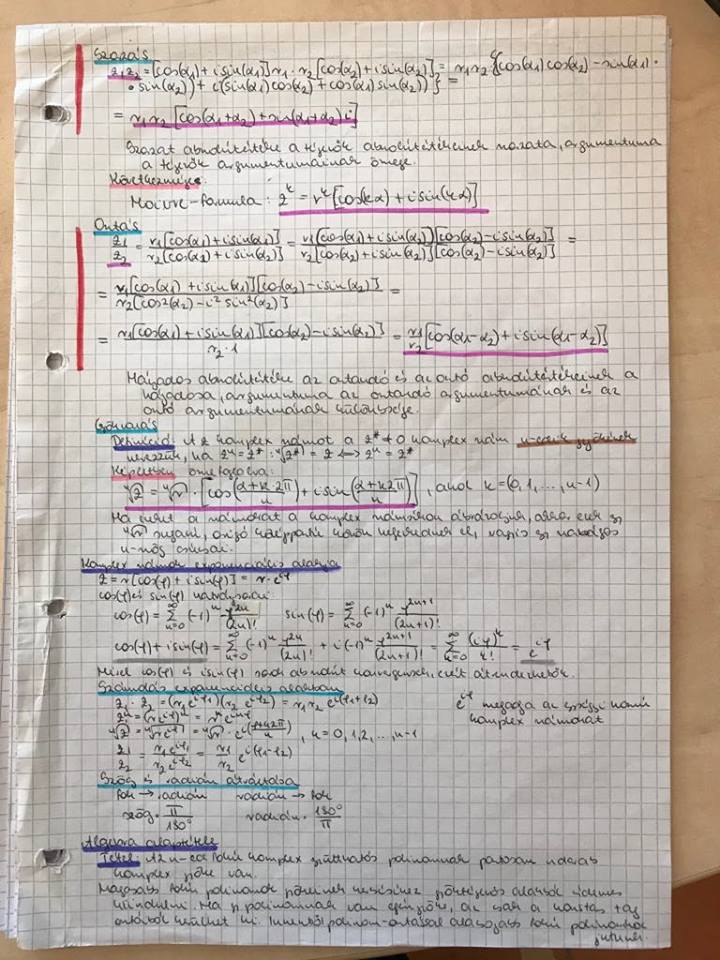 Szorzás
z₁z₂ = [cos(α1) + i sin(α1)] r₁ · r₂ [cos(α2) + i sin(α2)] = r₁ r₂ {(cos(α1) cos(α2) − sin(α1) ·
· sin(α2)) + i (sin(α1) cos(α2) + cos(α1) sin(α2))} =
= r₁ r₂ [cos(α1+α2) + sin(α1+α2) i]
Szorzat abszolútértéke a tényezők abszolútértékeinek szorzata, argumentuma
a tényezők argumentumainak összege.
Következménye:
Moivre-formula: z^k = r^k [cos(kα) + i sin(kα)]
Osztás
z₁/z₂ = r₁[cos(α1) + i sin(α1)] / r₂[cos(α2) + i sin(α2)] = r₁[cos(α1) + i sin(α2)][cos(α2) − i sin(α2)] / r₂[cos(α2) + i sin(α2)][cos(α2) − i sin(α2)] =
= r₁[cos(α1) + i sin(α1)][cos(α2) − i sin(α2)] / r₂[cos²(α2) − i² sin²(α2)] =
= r₁[cos(α1) + i sin(α1)][cos(α2) − i sin(α2)] / r₂·1 = r₁/r₂ [cos(α1−α2) + i sin(α1−α2)]
Hányados abszolútértéke az osztandó és az osztó abszolútértékeinek a
hányadosa, argumentuma az osztandó argumentumának és az
osztó argumentumának különbsége.
Gyökvonás
Definíció: A z komplex számot a z* ≠ 0 komplex szám n-edik gyökének
nevezzük, ha z^n = z* : ⁿ√(z*) = z ⟺ z^n = z*
Képletben összefoglalva:
ⁿ√z = ⁿ√r · [cos((α+k·2π)/n) + i sin((α+k2π)/n)], ahol k = (0,1,...,n−1)
Ha ezeket a számokat a komplex számsíkon ábrázoljuk, akkor ezek egy
ⁿ√r sugarú, origó középpontú körön helyezkednek el, vagyis egy szabályos
n-szög csúcsai.
Komplex számok exponenciális alakja
z = r[cos(φ) + i sin(φ)] = r · e^(iφ)
cos(φ) és sin(φ)
cos(φ) = Σ_(n=0)^∞ (−1)^n φ^(2n)/(2n)!   sin(φ) = Σ_(n=0)^∞ (−1)^n φ^(2n+1)/(2n+1)!
cos(φ) + i sin(φ) = Σ_(n=0)^∞ (−1)^n φ^(2n)/(2n)! + i (−1)^n φ^(2n+1)/(2n+1)! = Σ_(n=0)^∞ (iφ)^k/k! = e^(iφ)
Mivel cos(φ) és i sin(φ) sorok abszolút konvergensek, ezért átrendezhetők.
Számolás exponenciális alakban
z₁ · z₂ = (r₁ e^(iφ1))(r₂ e^(iφ2)) = r₁ r₂ e^(i(φ1+φ2))   e^(iφ) megadja az egységkörön
z^n = (r e^(iφ))^n = r^n e^(inφ)   komplex számokat
ⁿ√z = ⁿ√(r e^(iφ)) = ⁿ√r · e^(i((φ+k2π)/n)), k = 0,1,2,...,n−1
z₁/z₂ = r₁e^(iφ1)/r₂e^(iφ2) = r₁/r₂ e^(i(φ1−φ2))
Szög és radián átváltása
fok → radián   radián → fok
szög · π/180°   radián · 180°/π
Algebra alaptétele
Tétel: Az n-ed fokú komplex együtthatós polinomnak pontosan n darab
komplex gyöke van.
Magasabb fokú polinomok gyökeinek keresésénél gyöktényezős alakból érdemes
kiindulni. Ha p polinomnak van egész gyöke, az csak a konstans tag
osztóiból kerülhet ki. Innentől polinom-osztással alacsonyabb fokú polinomhoz
jutunk.